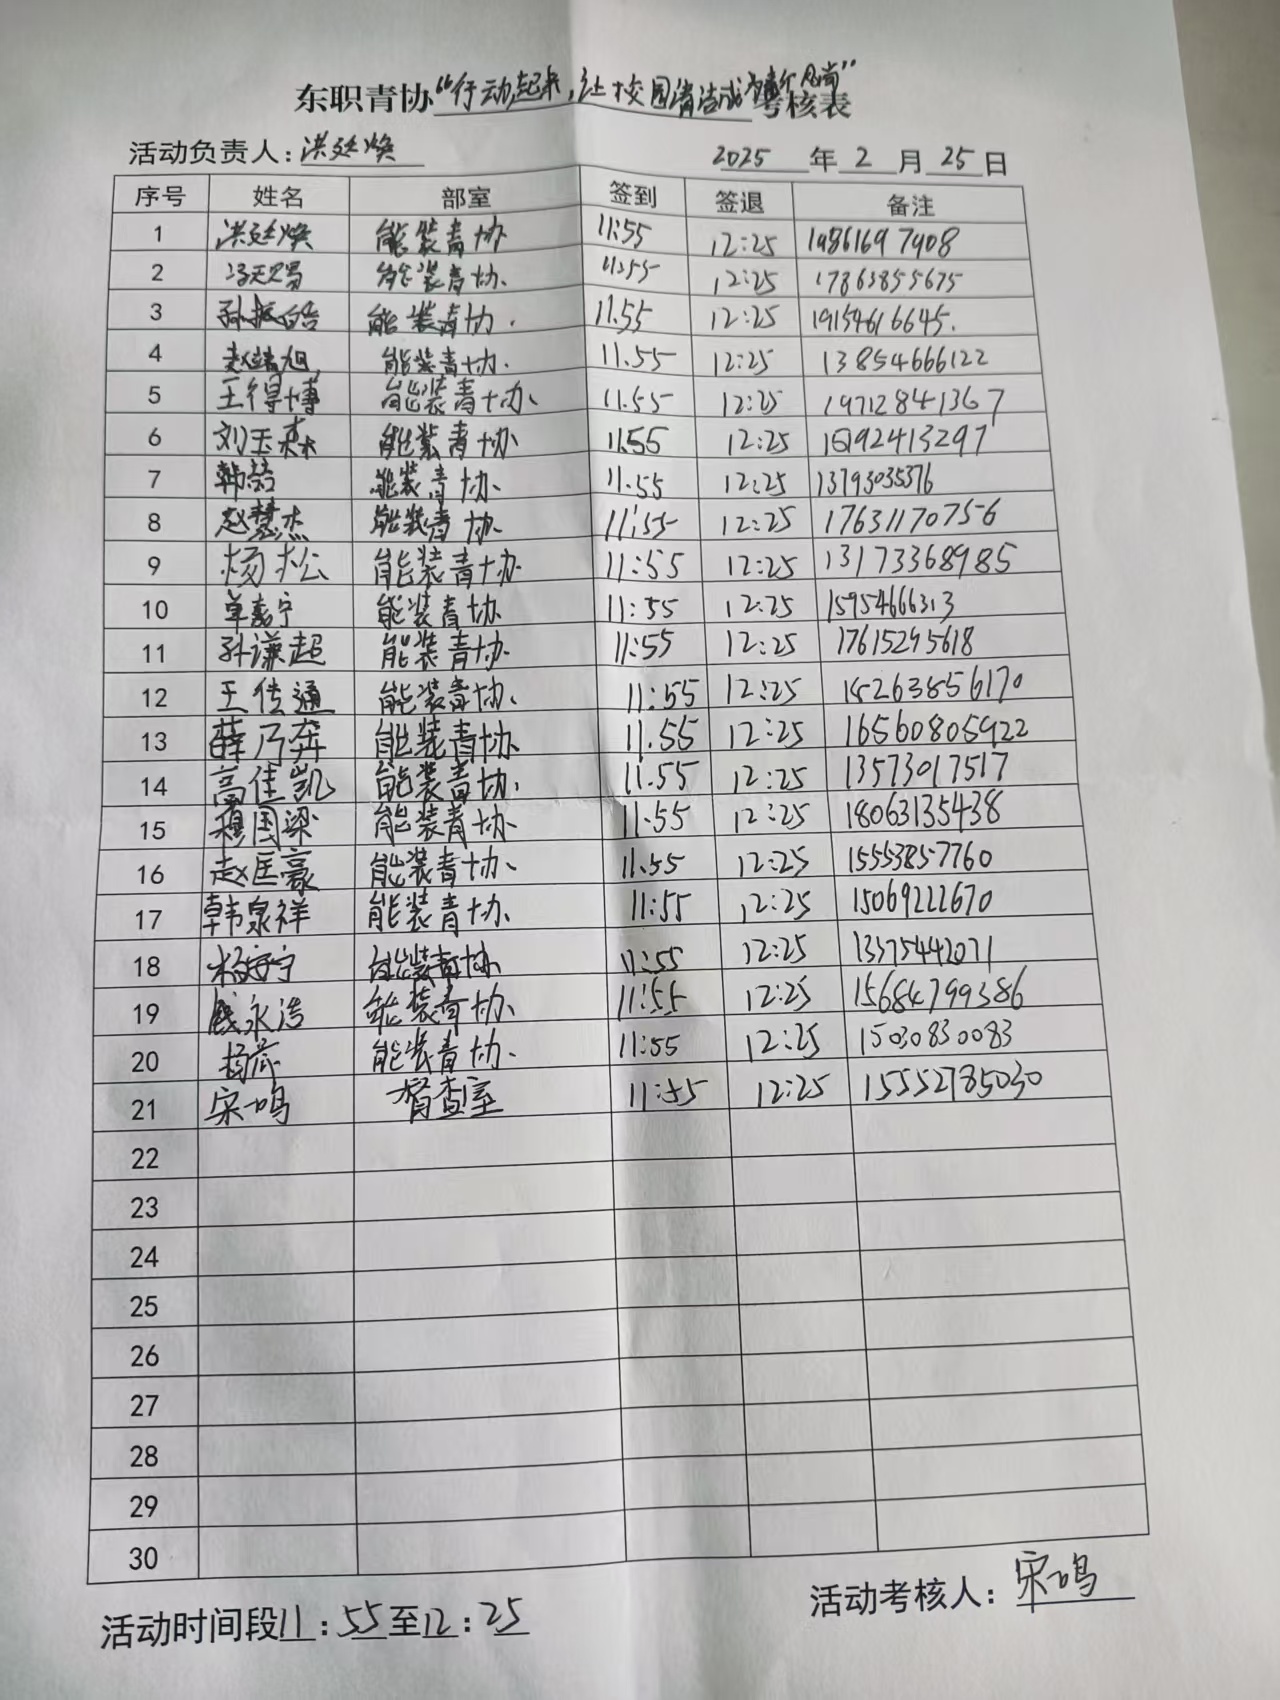 东职青协“行动起来,让校园清洁成 考核表
活动负责人:洪廷焕 2025 年 2 月 25 日
序号 姓名 部室 签到 签退 备注
1 洪廷焕 能装青协 11:55 12:25 19861697908
2 冯天赐 能装青协. 11:55 12:25 17863855675
3 孙振皓 能装青协. 11.55 12:25 19154616645.
4 赵靖旭 能装青协. 11.55 12:25 13854666122
5 王得博 能装青协、 11.55 12:25 19712841367
6 刘玉森 能装青协 11:55 12:25
7 韩喆 能装青协 11.55 12:25 13793035376
8 赵慧杰 能装青协 11:55 12:25 17631170756
9 杨松 能装青协 11:55 12:25 13173368985
10 单嘉宁 能装青协 11:55 12:25 15954666313
11 孙谦超 能装青协 11:55 12:25 17615295618
12 王传通 能装青协、 11:55 12:25 15263856170
13 薛乃奔 能装青协 11.55 12:25 16560805922
14 高佳凯 能装青协. 11.55 12:25 13573017517
15 穆国梁 能装青协 11.55 12:25 18063135438
16 赵匡豪 能装青协、 11.55 12:25 15553857760
17 韩泉祥 能装青协、 11:55 12:25 15069222670
18 杨宁 能装青协 11:55 12:25 13375442071
19 永浩 能装青协、 11:55 12:25 15684799386
20 杨 能装青协、 11:55 12:25 15030830083
21 宋鸣 督查室 11:55 12:25 15552785030
22
23
24
25
26
27
28
29
30
活动时间段11:55至12:25 活动考核人:宋鸣